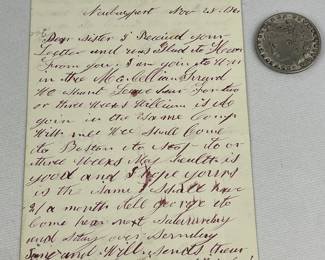 Newburyport Nov 24
Dear Sister I Received your
Letter and was Glad to Hear
From you. I am goin to War
in the McCllian Guard
We shant Leave here For two
or three weeks William is Al
goin in the same Comp
With me Wee Shall Come
to Boston to stop to or
three Weeks My health is
good and I hope yours
is the Same I Shall have
a month tell George to
Come here next Saturday
and Stay over Sunday
Jane and Will Sends their